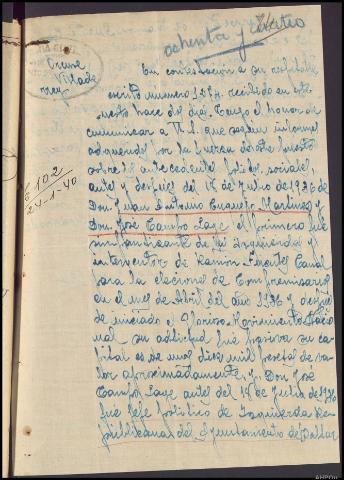 84
ochenta y cuatro
Crane
Villade
rrey
En contestación a su respetable
escrito numero recibido en este
puesto hace dos dias. Tengo el honor de
comunicar a V.S. que segun informes
adqueridos por la fuerza de este puesto
sobre los antecedentes politicos, sociales,
antes y despues del 18 de Julio de 1936 de
Don Juan Antonio Martinez y
Don José Campo Lage el primero fue
simpatizante de las izquierdas y
interventor de Ramón Fuentes Canal
para la eleciones de Compromisarios
en el mes de Abril del año 1936 y despues
de iniciado el Glorioso Movimiento Nacio
nal su actitud fue pasiva su ca-
pital es de unas diez mil pesetas de va-
lor aproximadamente, y Don José
Campo Lage antes del 18 de Julio de 1936
fue Jefe politico de Izquierda Re-
publicana del Ayuntamiento de Baltar
102
24-1-40
AHPOu